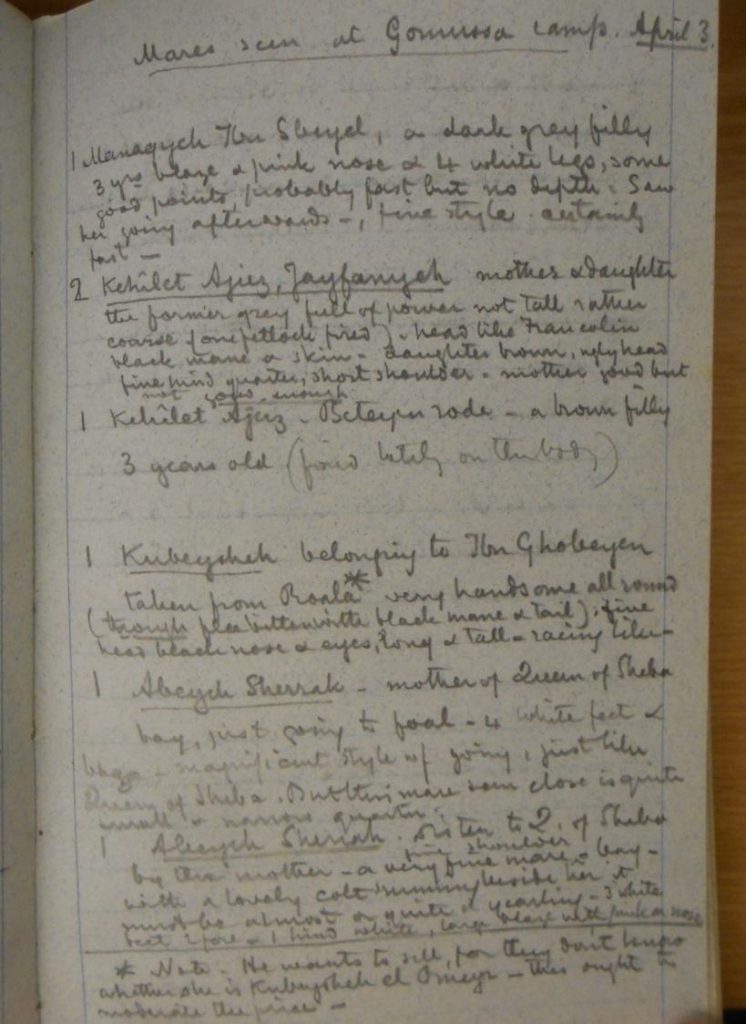 Mares seen at Gomussa camp. April 3.
1 Managych Ibn Sbeyel, a dark grey filly
3 yrs blaze & pink nose & 4 white legs, some
good points, probably fast but no depth. Saw
her going afterwards -, fine style certainly
fast -
2 Kehilet Ajuz, Jayfanyeh mother & daughter
the former grey full of power not tall rather
coarse (one fetlock fired). head like Francolin
black mane & skin - daughter brown, ugly head
fine hind quarter, short shoulder - mother good but
not good enough
1 Kehilet Ajuz - Beteyen rode - a brown filly
3 years old (fired lately on the body)
1 Kubeysheh belonging to Ibn Ghobeyen
taken from Roala * very handsome all round
(though fleabitten with black mane & tail). fine
head black nose & eyes, long & tall - racing like -
1 Abeyeh Sherrak - mother of Queen of Sheba
bay, just going to foal - 4 white feet &
blaze - magnificent style of going, just like
Queen of Sheba. But this mare seen close is quite
small & narrow quarter.
1 Abeyeh Sherrak. Sister to Q. of Sheba
fine shoulder
by the mother - a very fine mare - bay -
with a lovely colt running beside her it
must be almost or quite a yearling - 3 white
feet 2 fore & 1 hind white, large blaze with pink on nose
* Note. He wants to sell, for they don't know
whether she is Kubeysheh el Omeyr - this ought to
moderate the price -